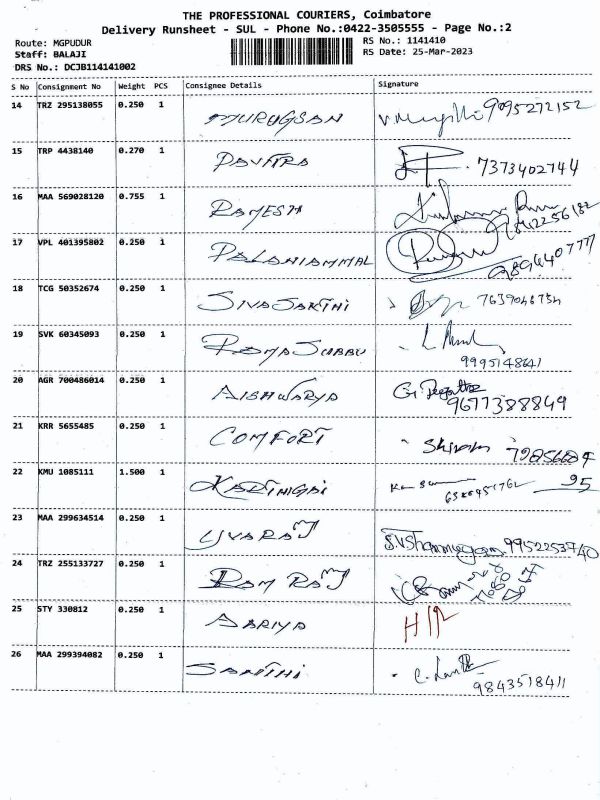 THE PROFESSIONAL COURIERS, Coimbatore
Delivery Runsheet - SUL - Phone No.:0422-3505555 - Page No.:2
Route: MGPUDUR
RS No.: 1141410
Staff: BALAJI
RS Date: 25-Mar-2023
DRS No.: DCJB114141002
S No Consignment No Weight PCS Consignee Details Signature
14 TRZ 295138055 0.250 1 MURUGSAN 9095272152
15 TRP 4438140 0.270 1 PAVITRA 7373402744
16 MAA 569028120 0.755 1 RAMESH
17 VPL 401395802 0.250 1 PALANIAMMAL
18 TCG 50352674 0.250 1 SIVASAKTHI
19 SVK 60345093 0.250 1 RAMASUBBU 9995148641
20 AGR 700486014 0.250 1 AISHWARYA 9677388849
21 KRR 5655485 0.250 1 COMFORT
22 KMU 1085111 1.500 1 KARTHIGAI 95
23 MAA 299634514 0.250 1 UVARAJ S.V.Shanmugam 9952253740
24 TRZ 255133727 0.250 1 RAM RAJ
25 STY 330812 0.250 1 AARIYA
26 MAA 299394082 0.250 1 SAKTHI 9843518411